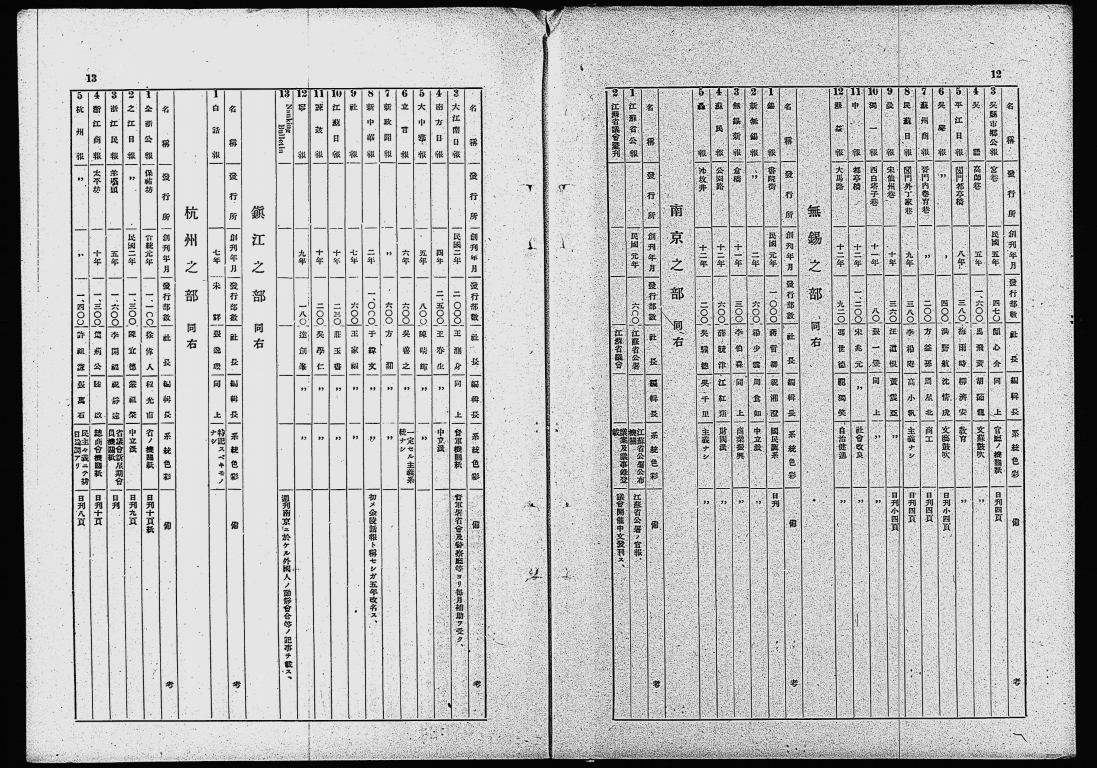 12
名稱 發行所 創刊年月 發行部數 社長 編輯長 系統色彩 備考
3 吳縣市鄉公報 宮巷 民國五年 四七〇 顏心介 同上 官廳ノ機關紙 日刊四頁
4 吳語 高師巷 五年 一、六〇〇 馬飛黃 胡 文蘇鼓吹 〃
5 平江日報 閶門都亭橋 八年 三八〇 梅雨時 柳濟安 敎育 〃
6 吳聲報 〃 〃 五〇〇 洪野航 沈情虎 文藝鼓吹 日刊小四頁
7 蘇州商報 〃 二〇〇 方益孫 周星北 商工 日刊四頁
8 民蘇日報 閶門外丁家巷 九年 三八〇 李楊庵 高小帆 主義ナシ 日刊四頁
9 鼓報 宋仙州巷 十年 三六〇 汪遣恨 黃震亞 〃 日刊小四頁
10 獨一報 西白塔子巷 十一年 一八〇 張一 同上 〃 〃
11 中報 都亭橋 十二年 一二〇〇 宋兆元 〃 社會改良 〃
12 蘇益報 大馬路 十二年 九二〇 馮世德 顧獨笑 自治促進 〃
無錫之部 同右
名稱 發行所 創刊年月 發行部數 社長 編輯長 系統色彩 備考
1 錫報 書院街 民國元年 一〇〇〇 蔣哲 湘澄 國民黨系 日刊
2 新無錫報 〃 二年 六〇〇 楊少雲 周含如 中立黨 〃
3 無錫新報 倉橋 十一年 三〇〇 李伯森 同上 商業振興 〃
4 蘇民報 公園路 十二年 六〇〇 薛 江紅蕉 財閥派 〃
5 蟲報 沖坟井 十二年 二〇〇 吳 德 吳千里 主義ナシ 〃
南京之部 同右
名稱 發行所 創刊年月 發行部數 社長 編輯長 系統色彩 備考
1 江蘇省公報 民國元年 六〇〇 江蘇省公署 江蘇省公署公布機關 江蘇省公署ノ官報、
2 江蘇省議會彙刊 江蘇省議會 議案及議事錄登載 議會開催中文發刊ス、
13
名稱 發行所 創刊年月 發行部數 社長 編輯長 系統色彩 備考
3 大江南日報 民國二年 二〇〇〇 王 身 同上 督軍機關紙 督軍省會及警察廳等ヨリ每月補助ヲ受ク、
4 南方日報 四年 二、五〇〇 王春生 〃 中立黨
5 大中華報 五年 八〇〇 陳 〃 〃
6 立言報 六年 六〇〇 吳善之 〃 一定セル主義系統ナシ
7 新政聞報 〃 七〇〇 方灝 〃 〃
8 新中華報 二年 一〇〇〇 于緯文 〃 〃 初メ金陵話報ト稱セシガ五年改名ス、
9 社報 七年 六〇〇 王家福 〃 〃
10 江蘇日報 十年 二三〇 莊玉書 〃 〃
11 鼓報 十年 二〇〇 吳學仁 〃 〃
12 寧報 九年 一八〇 達劍峯 〃 〃
13 Nanking Bulletin 週刊南京ニ於ケル外國人ノ會合等ノ記事ヲ載ス、
鎭江之部 同右
名稱 發行所 創刊年月 發行部數 社長 編輯長 系統色彩 備考
1 白話報 七年 未詳 張逸 同上 特記スベキモノナシ
杭州之部 同右
名稱 發行所 創刊年月 發行部數 社長 編輯長 系統色彩 備考
1 全浙公報 保祐坊 宣統元年 一、一〇〇 徐佛人 程光甫 省ノ機關紙 日刊十頁紙
2 之江日報 〃 民國二年 一、三〇〇 陳宜慈 嚴祖榮 中立黨 日刊九頁
3 浙江民報 羊壩頭 五年 一、六〇〇 李開福 祝靜遠 省議會新星期會員機關紙 日刊
4 浙江商報 太平坊 十年 一、三〇〇 公 啟 總商會機關紙 日刊十頁
5 杭州報 〃 〃 一、四〇〇 許祖謙 張萬石 民主々義ニテ 排日論調アリ 日刊八頁